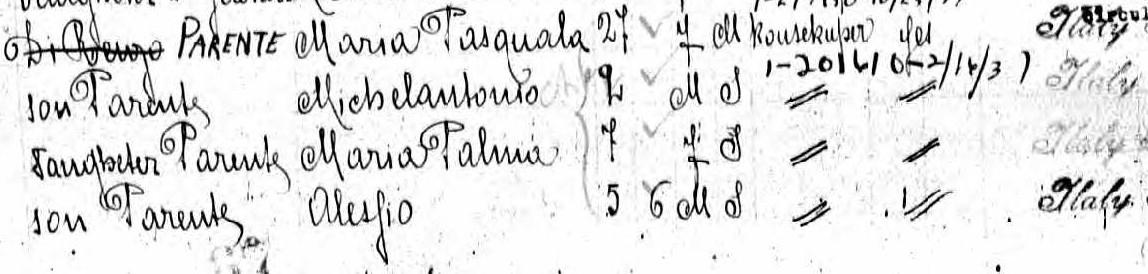 Di Renzo PARENTE Maria Pasquala 27 f M housekeeper yes Italy
1-201610-2/14/31
son Parente Michelantonio 9 M S " " Italy
daughter Parente Maria Palma 7 f S " " Italy
son Parente Alessio 5 6 M S " " Italy